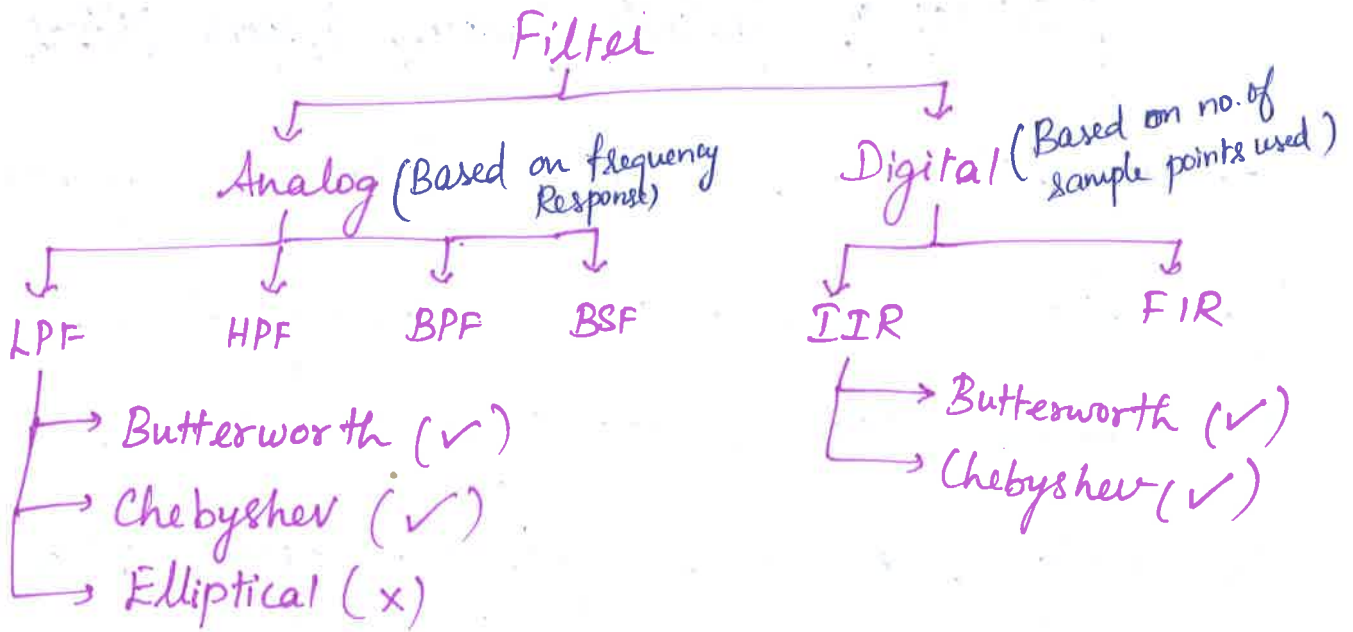 Filter
Analog (Based on frequency
Response)
Digital (Based on no. of
sample points used)
LPF HPF BPF BSF
IIR FIR
Butterworth (✓)
Chebyshev (✓)
Elliptical (×)
Butterworth (✓)
Chebyshev (✓)